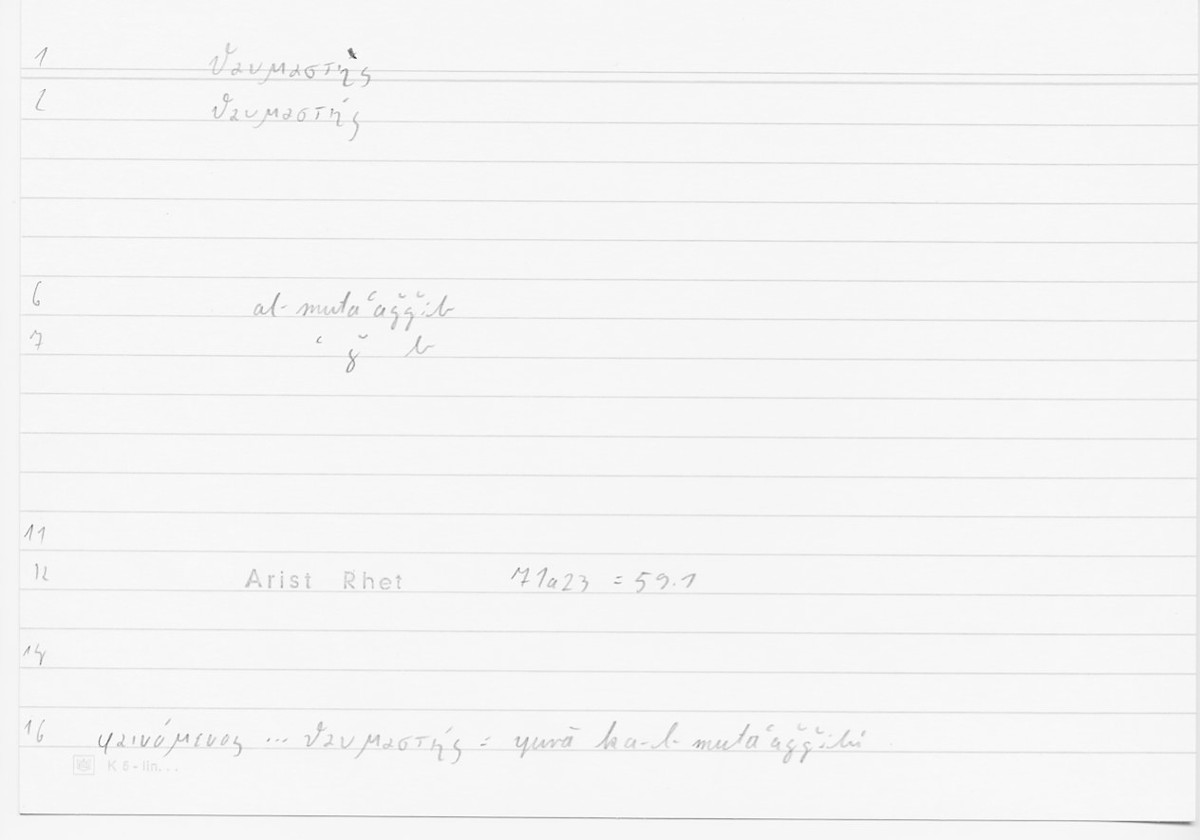 1 θαυμαστής
2 θαυμαστής
6 al-mutaʿaǧǧib
7 ʿ ǧ b
11
12 Arist Rhet 71a23 = 59.1
14
16 φαινόμενος ... θαυμαστής = yurā ka-l-mutaʿaǧǧibi
K 5 - lin...